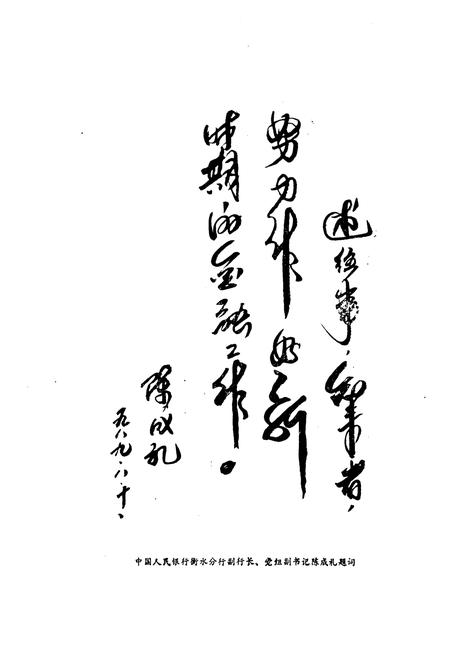 述往事，知来者，
努力作好新
时期的金融工作。
陈成礼
一九八九、八、十、
中国人民银行衡水分行副行长、党组副书记陈成礼题词